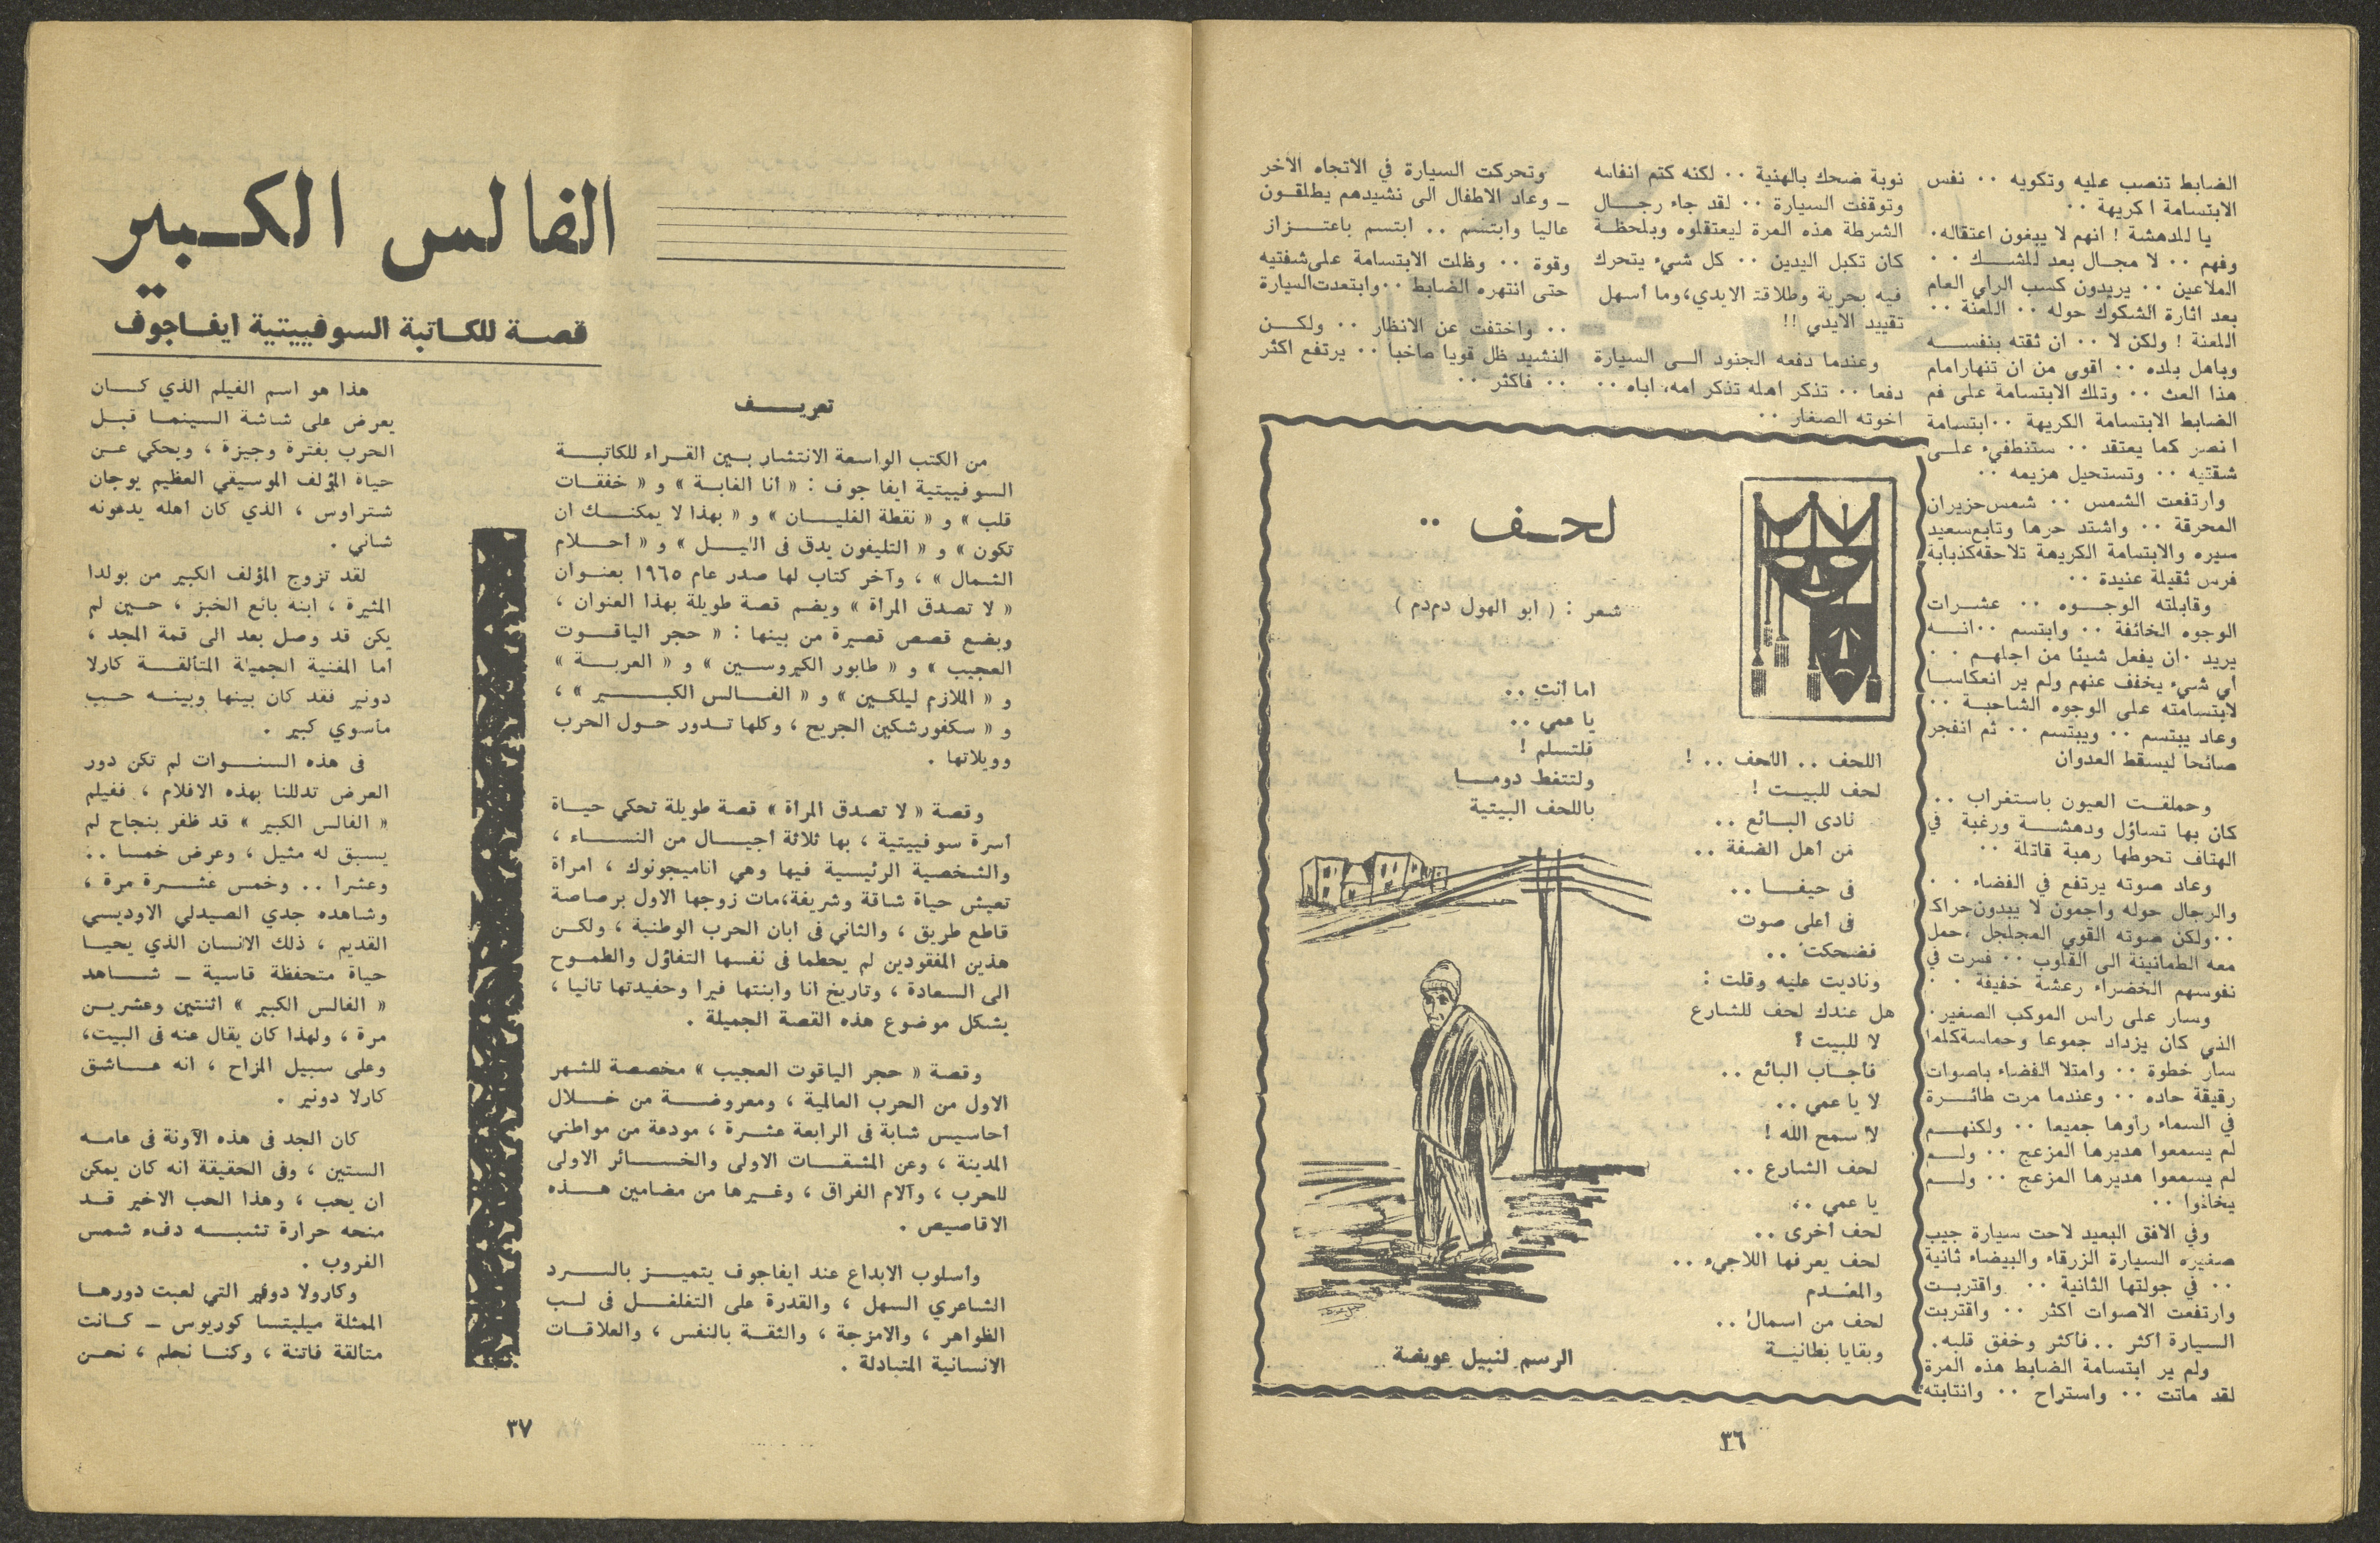 الضابط تنصب عليه وتكويه ٠٠ نفس
الابتسامة اكريهة ٠٠
يا للدهشة ! انهم لا يبغون اعتقاله.
وفهم ٠٠ لا مجـال بعد للشــك ٠٠
الملاعين ٠٠ يريدون كسب الراي العام
بعد اثارة الشكوك حوله ٠٠ اللعنة ٠٠
اللعنة ! ولكن لا ٠٠ ان ثقته بنفســه
وباهل بلده ٠٠ اقوى من ان تنهارامام
هذا العث ٠٠ وتلك الابتسامة على فم
الضابط الابتسامة الكريهة ٠٠ابتسامة
ا نصر كما يعتقد ٠٠ ستنطفيء علـى
شفتيه ٠٠ وتستحيل هزيمه ٠٠
وارتفعت الشمس ٠٠ شمس حزيران
المحرقة ٠٠ واشتد حرها وتابع سعيد
سيره والابتسامة الكريهة تلاحقه كذبابة
فرس ثقيلة عنيدة ٠٠
وقابلته الوجـوه ٠٠ عشـرات
الوجوه الخائفة ٠٠ وابتسم ٠٠انــه
يريد ٠ان يفعل شيئا من اجلهـم ٠٠
أي شيء يخفف عنهم ولم ير انعكاسـا
لابتسامته على الوجوه الشاحبـة ٠٠
وعاد يبتسم ٠٠ ويبتسم ٠٠ ثم انفجر
صائحا ليسقط العدوان
وحملقـت العيون باستغراب ٠٠
كان بها تساؤل ودهشــة ورغبة في
الهتاف تحوطها رهبة قاتلة ٠٠
وعاد صوته يرتفع في الفضاء ٠٠
والرجال حوله واجمون لا يبدون حراك
٠٠ولكن صوته القوي المجلجل ،حمل
معه الطمانينة الى القلوب ٠٠ فسرت في
نفوسهم الخضراء رعشة خفيفة ٠٠
وسار على راس الموكب الصغير٠
الذي كان يزداد جموعا وحماسة كلما
سار خطوة ٠٠ وامتلا الفضاء باصوات
رقيقة حاده ٠٠ وعندما مرت طائـرة
في السماء رأوها جميعا ٠٠ ولكنهـم
لم يسمعوا هديرها المزعج ٠٠ ولـم
لم يسمعوا هديرها المزعج ٠٠ ولـم
يخافوا ٠٠
وفي الافق البعيد لاحت سيارة جيب
صغيره السيارة الزرقاء والبيضاء ثانية
٠٠ في جولتها الثانية ٠٠ واقتربـت
وارتفعت الاصوات اكثر ٠٠ واقتربت
السيارة اكثر ٠٠ فأكثر وخفق قلبه.
ولم ير ابتسامة الضابط هذه المرة
لقد ماتت ٠٠ واستراح ٠٠ وانتابته
نوبة ضحك بالهنية ٠٠ لكنه كتم انفاسه
وتوقفت السيارة ٠٠ لقد جاء رجـال
الشرطة هذه المرة ليعتقلوه وبلحظـة
كان تكبل اليدين ٠٠ كل شيء يتحرك
فيه بحرية وطلاقة الايدي،وما أسهل
تقييد الايدي !!
وعندما دفعه الجنود الـى السيارة
دفعا ٠٠ تذكر اهله تذكر امه، اباه ٠٠
اخوته الصغار ٠٠
وتحركت السيارة في الاتجاه الآخر
ــ وعاد الاطفال الى نشيدهم يطلقـون
عاليا وابتسم ٠٠ ابتسم باعتـزاز
وقوة ٠٠ وظلت الابتسامة على شفتيه
حتى انتهره الضابط ٠٠وابتعدت السيارة
٠٠ واختفت عن الانظار ٠٠ ولكـن
النشيد ظل قويا صاخبا ٠٠ يرتفع اكثر
٠٠ فاكثر ٠٠
لحـف ٠٠
شعر : ( ابو الهول دم دم )
اللحف ٠٠ اللحف ٠٠ !
لحف للبيـت !
نادى البـائع ٠٠
من اهل الضفة ٠٠
فى حيفـا ٠٠
فى أعلى صوت
فضحكت ٠٠
وناديت عليه وقلت :
هل عندك لحف للشارع
لا للبيت ؟
فأجـاب البائع ٠٠
لا يا عمي ٠٠
لا سمح الله !
لحف الشارع ٠٠
يا عمي ٠٠
لحف أخرى ٠٠
لحف يعرفها اللاجيء ٠٠
والمعـدم
لحف من اسمال ٠٠
وبقايا بطانيـة
اما أنت ٠٠
يا عمي ٠٠
فلتسلم !
ولتتغط دومــا
باللحف البيتية
الرسم لنبيل عويضة
٣٦
الفالس الكـبير
قصـة للكـاتبة السوفييتية ايفـاجوف
تعريــف
من الكتب الواسعة الانتشار بـين القـراء للكاتبــة
السوفييتية ايفا جوف : « أنا الغابـة » و « خفقـات
قلب » و « نقطة الغليـان » و « بهذا لا يمكنــك ان
تكون » و « التليفون يدق فى الليـل » و « أحـلام
الشمال » ، وآخر كتاب لها صدر عام ١٩٦٥ بعنـوان
« لا تصدق المرأة » ويضم قصة طويلة بهذا العنوان ،
وبضع قصص قصيرة من بينها : « حجر الياقـوت
العجيب » و « طابور الكيروسـين » و « العربـة »
و « الملازم ليلكـين » و « الفـالس الكبــير » ،
و « سكفورشكين الجريح ، وكلها تـدور حـول الحرب
وويلاتها .
وقصة « لا تصدق المرأة » قصة طويلة تحكي حيـاة
أسرة سوفييتية ، بها ثلاثة أجيـال من النسـاء ،
والشخصية الرئيسية فيها وهي اناميجونوك ، امرأة
تعيش حياة شاقة وشريفة،مات زوجها الاول برصاصة
قاطع طريق ، والثاني فى ابان الحرب الوطنية ، ولكـن
هذين المفقودين لم يحطما فى نفسها التفاؤل والطمـوح
الى السعادة ، وتاريخ انا وابنتها فيرا وحفيدتها تانيا ،
يشكل موضوع هذه القصة الجميلة .
وقصة « حجر الياقوت العجيب » مخصصة للشهر
الاول من الحرب العالمية ، ومعروضــة من خــلال
أحاسيس شابة فى الرابعة عشـرة ، مودعة من مواطني
المدينة ، وعن المشقـات الاولى والخسـائر الاولى
للحرب ، وآلام الفراق ، وغـيرها من مضامين هــذه
الاقاصيص .
وأسلوب الابداع عند ايفاجوف يتميـز بالسـرد
الشاعري السهل ، والقدرة على التغلغـل فى لـب
الظواهر ، والامزجة ، والثقـة بالنفس ، والعلاقـات
الانسانية المتبادلة .
هذا هو اسم الفيلم الذي كــان
يعرض على شاشة السينمـا قبـل
الحرب بفترة وجيزة ، ويحكي عـن
حياة المؤلف الموسيقي العظيم يوجان
شتراوس ، الذي كان أهله يدعونه
شاني .
لقد تزوج المؤلف الكبير من بولدا
المثيرة ، ابنه بائع الخبز ، حـين لم
يكن قد وصل بعد الى قمة المجد ،
اما المغنية الجميلة المتألقــة كارلا
دونير فقد كان بينها وبينـه حـب
مأسوي كبير .
فى هذه السنــوات لم تكن دور
العرض تدللنا بهذه الافلام ، ففيلم
« الفالس الكبير » قد ظفر بنجاح لم
يسبق له مثيل ، وعرض خمسا ٠٠
وعشرا ٠٠ وخمس عشــرة مرة ،
وشاهده جدي الصيدلي الاوديسي
القديم ، ذلك الانسان الذي يحيـا
حياة متحفظة قاسية ــ شـاهد
« الفالس الكبير » اثنتين وعشريـن
مرة ، ولهذا كان يقال عنه فى البيت،
وعلى سبيل المزاح ، انه عـاشق
كارلا دونير .
كان الجد فى هذه الآونة فى عامـه
الستين ، وفى الحقيقة انه كان يمكن
ان يحب ، وهذا الحب الاخير قـد
منحه حرارة تشبـه دفء شمس
الغروب .
وكارولا دونير التي لعبت دورهـا
الممثلة ميليتسا كوريوس ــ كـانت
متألقة فاتنة ، وكنـا نحلم ، نحـن
٣٧